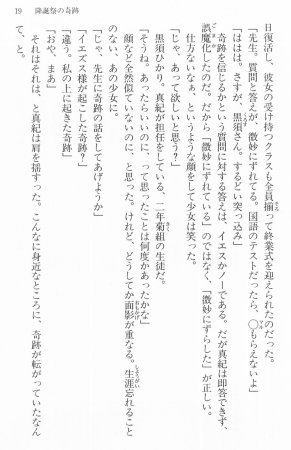 19　降誕祭の奇跡
日復活し、彼女の受け持つクラスも全員揃って終業式を迎えられたのだった。
「先生。質問と答えが、微妙にずれている。国語のテストだったら、◯もらえないよ」
「ははは。さすが、黒須さん。するどい突っ込み」
　奇跡を信じるかという質問に対する答えは、イエスかノーである。だが真紀は即答できず、
誤魔化したのだ。だから「微妙にずれている」のではなく、「微妙にずらした」が正しい。
　仕方ないなぁ、というような顔をして少女は笑った。
「じゃ、あって欲しいと思う？」
「そうね。あったらいいのに、って思ったことは何度かあったかな」
　黒須ひかり。真紀が担任をしている、二年菊組の生徒だ。
　顔など全然似ていないのに、と思った。けれど、どうしてか面影が重なる。生涯忘れること
のない、あの少女に。
「じゃ、先生に奇跡の話をしてあげようか」
「イエズス様が起こした奇跡？」
「違う。私の上に起きた奇跡」
「おや、まあ」
　それはそれは、と真紀は肩を揺すった。こんなに身近なところに、奇跡が転がっていたなん
て、と。